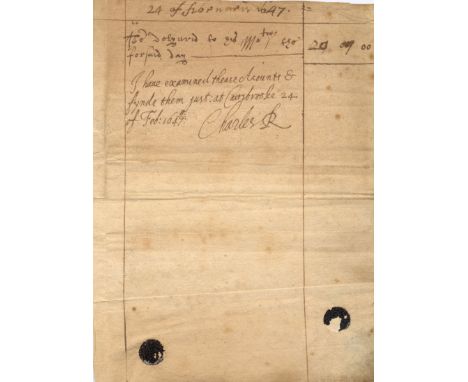 24 of ffebruary 1647.
to his Ma^tie the
forsaid day 20 00 00
I have examined these Accounts &
fynde them just: at Carisbrooke 24
of Feb: 1647.
Charles R